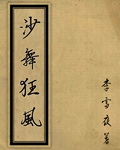 沙舞狂風
李雪夜著